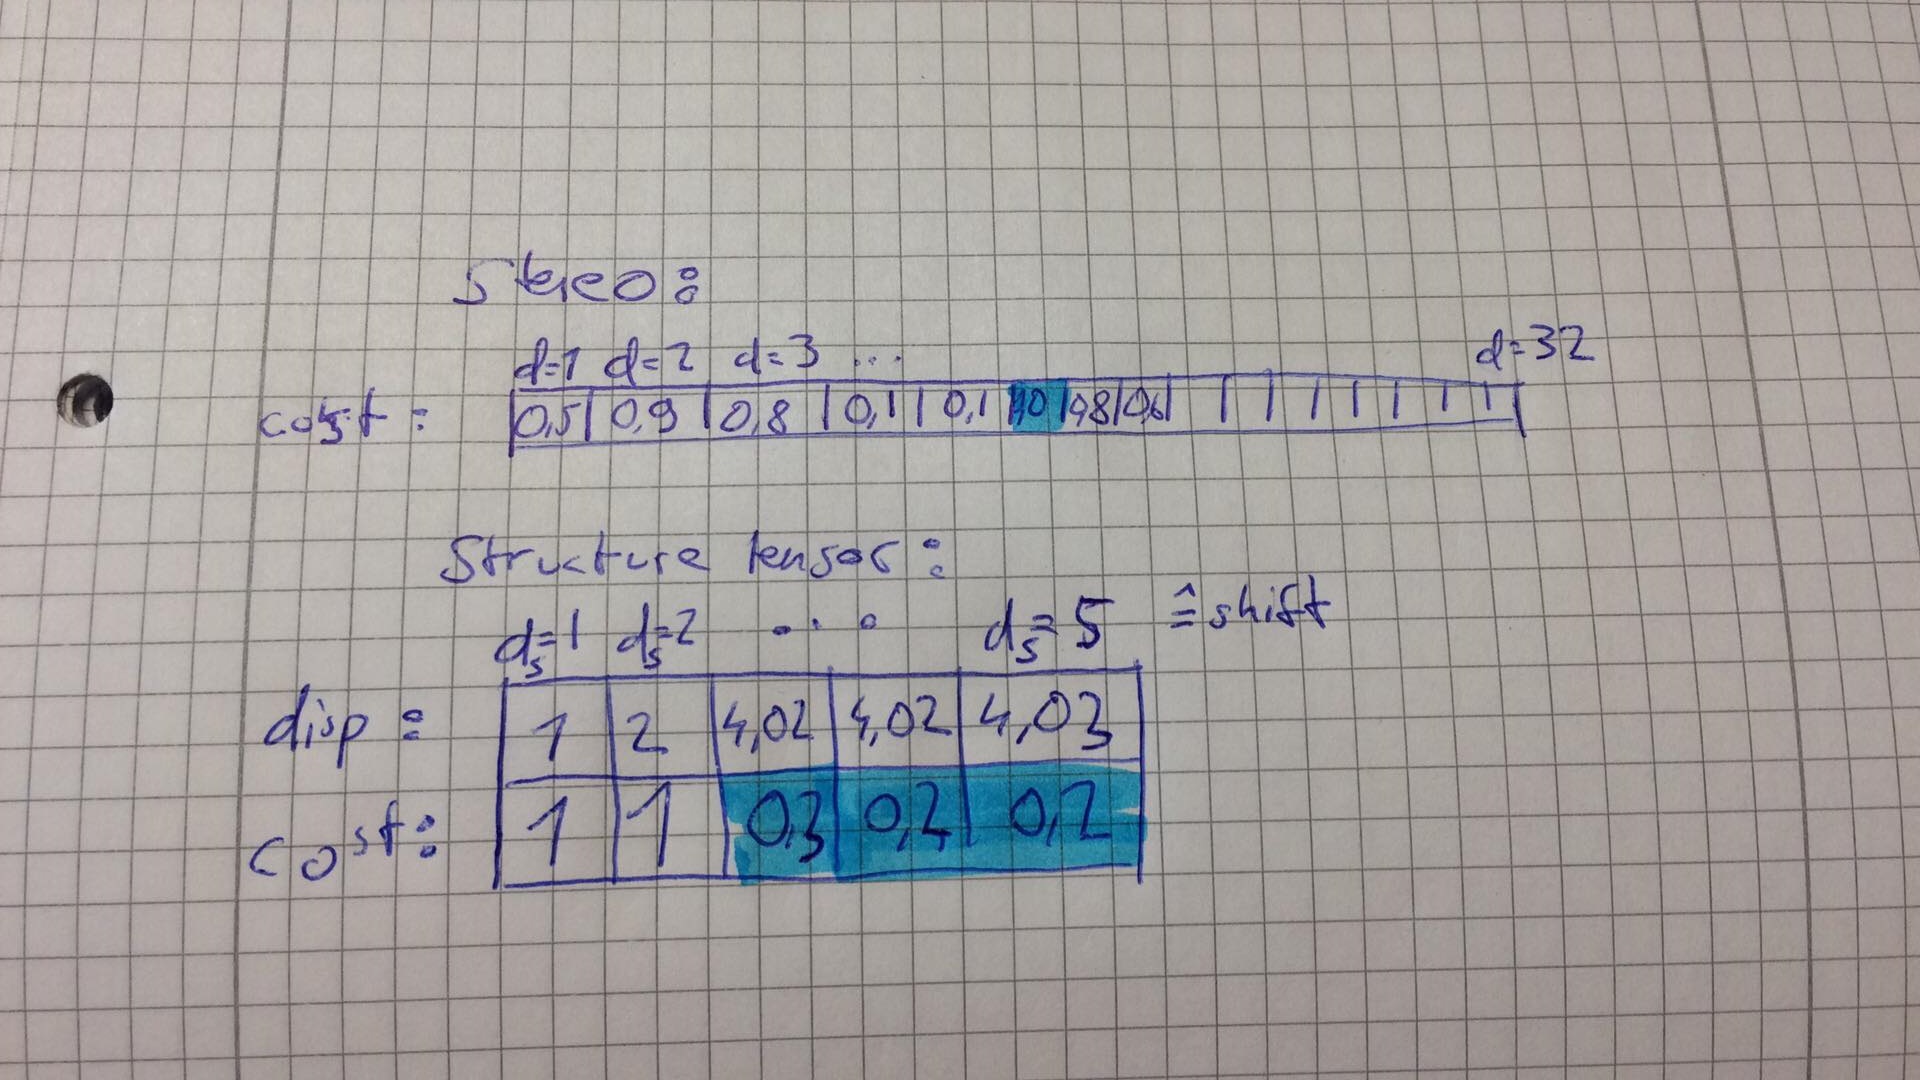 Stereo:
d=1 d=2 d=3 ... d=32
cost: 0,5 0,9 0,8 0,1 0,1 0,8 0,6
Structure tensor:
ds=1 ds=2 ... ds=5 ≙ shift
disp: 1 2 4,02 4,02 4,03
cost: 1 1 0,3 0,2 0,2